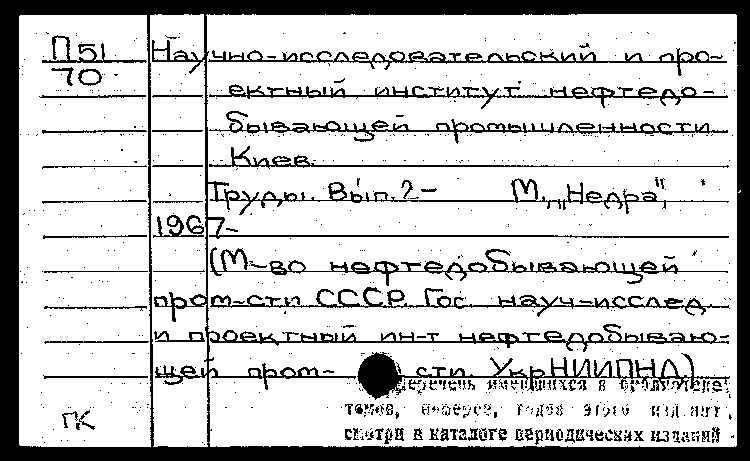 П51 Научно-исследовательский и про-
70 ектный институт нефтедо-
бывающей промышленности.
Киев.
Труды. Вып. 2- М., „Недра",
1967-
(М-во нефтедобывающей
пром-сти СССР. Гос. науч-исслед.
и проектный ин-т нефтедобываю-
щей пром-сти. УкрНИИПНД)
Перечень имеющихся в библиотеке
томов, номеров, годов этого издания,
смотри в каталоге периодических изданий
ГК